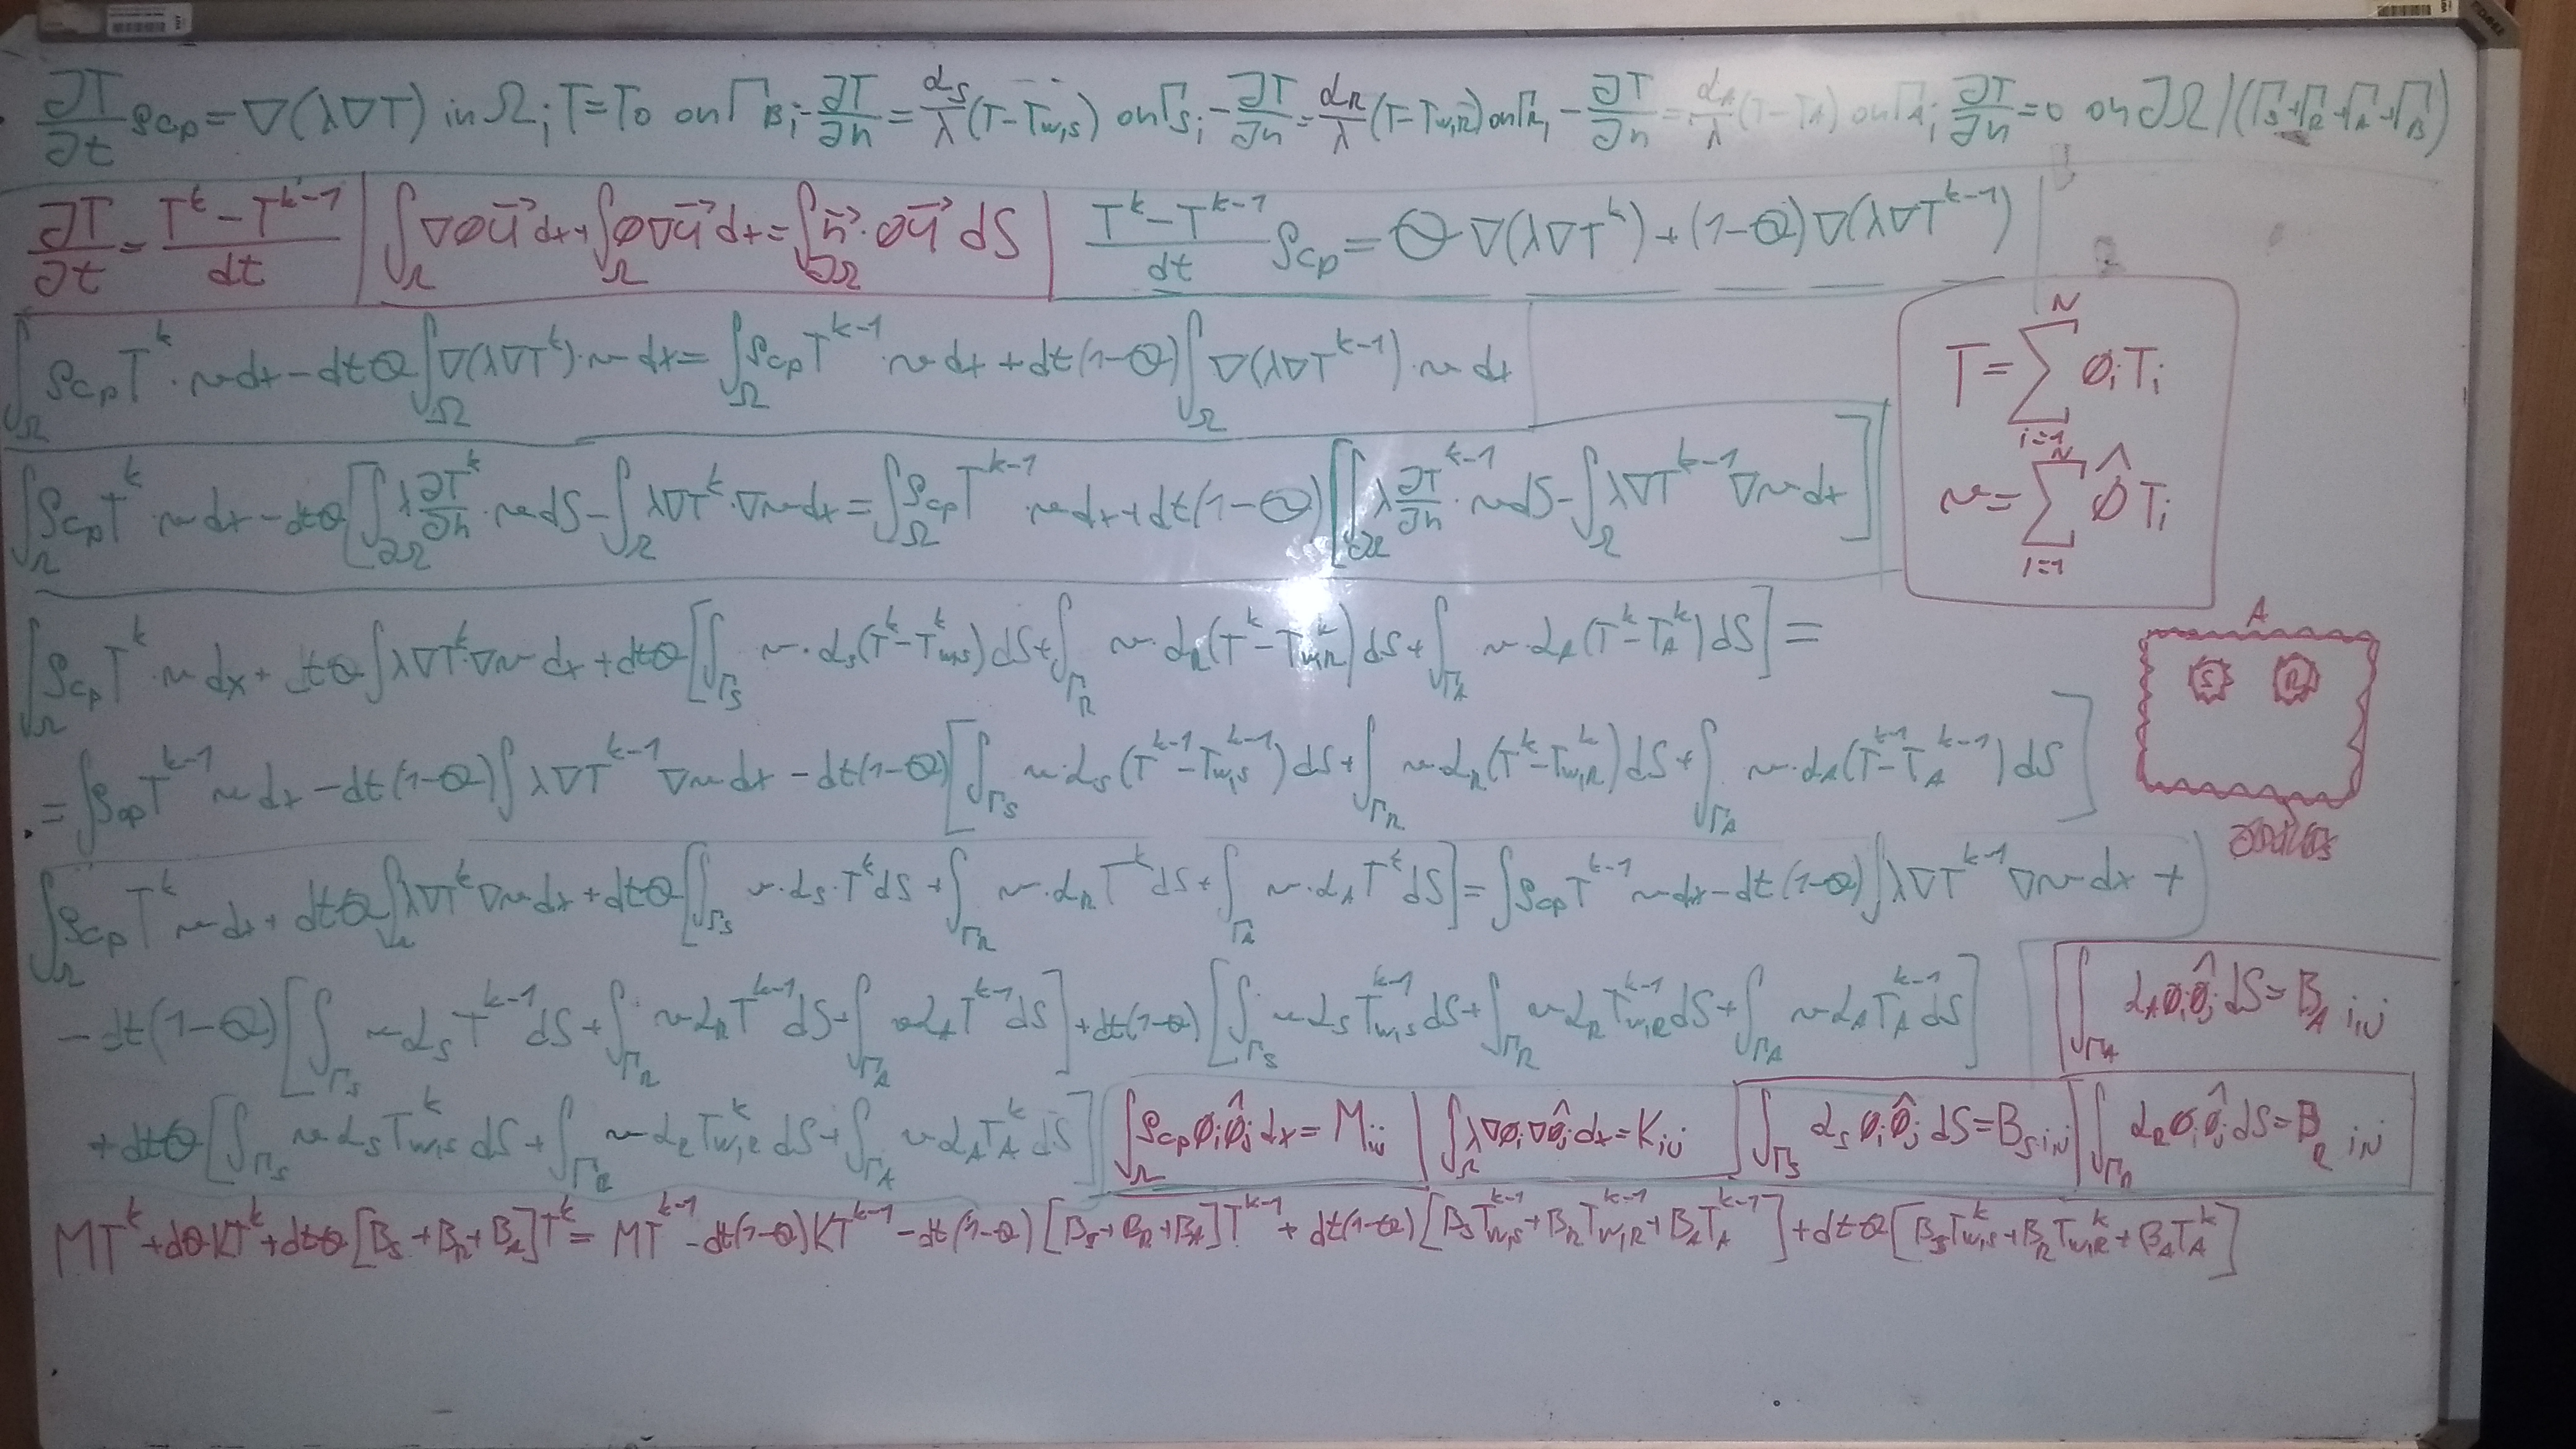 ∂T/∂t ρcp = ∇(λ∇T) in Ω; T=T0 on Γ_B; -∂T/∂n = α_S/λ (T-T_w,s) on Γ_S; -∂T/∂n = α_R/λ (T-T_w,R) on Γ_R, -∂T/∂n = α_A/λ (T-T_A) on Γ_A; ∂T/∂n = 0 on ∂Ω/(Γ_S+Γ_R+Γ_A+Γ_B)
∂T/∂t = (T^k - T^k-1)/dt | ∫_Ω ∇Ø u⃗ dx + ∫_Ω Ø∇u⃗ dx = ∫_∂Ω n⃗·Øu⃗ dS | (T^k - T^k-1)/dt ρcp = Θ∇(λ∇T^k) + (1-Θ)∇(λ∇T^k-1)
∫_Ω ρcp T^k · v dx - dtΘ ∫_Ω ∇(λ∇T^k)·v dx = ∫_Ω ρcp T^k-1 · v dx + dt(1-Θ) ∫_Ω ∇(λ∇T^k-1)·v dx
T = Σ_i=1^N Ø_i T_i
∫_Ω ρcp T^k · v dx - dtΘ [∫_∂Ω λ ∂T^k/∂n · v dS - ∫_Ω λ∇T^k·∇v dx = ∫_Ω ρcp T^k-1 · v dx + dt(1-Θ) [∫_∂Ω λ ∂T^k-1/∂n · v dS - ∫_Ω λ∇T^k-1 ∇v dx]
v = Σ_i=1^N Ø̂ T_i
∫_Ω ρcp T^k · v dx + dtΘ ∫ λ∇T^k·∇v dx + dtΘ [∫_Γ_S v·α_S(T^k-T_w,s^k) dS + ∫_Γ_R v·α_R(T^k-T_w,R^k) dS + ∫_Γ_A v·α_A(T^k-T_A^k) dS] =
A
S R
= ∫ρcp T^k-1 v dx - dt(1-Θ) ∫ λ∇T^k-1 ∇v dx - dt(1-Θ) [∫_Γ_S v·α_S (T^k-1-T_w,s^k-1) dS + ∫_Γ_R v α_R (T^k-T_w,R^k) dS + ∫_Γ_A v·α_A (T^k-1-T_A^k-1) dS]
∫_Ω ρcp T^k v dx + dtΘ ∫_Ω λ∇T^k ∇v dx + dtΘ [∫_Γ_S v·α_S·T^k dS + ∫_Γ_R v·α_R T^k dS + ∫_Γ_A v·α_A T^k dS] = ∫ρcp T^k-1 v dx - dt(1-Θ) ∫ λ∇T^k-1 ∇v dx +
- dt(1-Θ) [∫_Γ_S v α_S T^k-1 dS + ∫_Γ_R v α_R T^k-1 dS + ∫_Γ_A v α_A T^k-1 dS] + dt(1-Θ) [∫_Γ_S v α_S T_w,s^k-1 dS + ∫_Γ_R v α_R T_w,R^k-1 dS + ∫_Γ_A v α_A T_A^k-1 dS] ∫_Γ_A α_A Ø_i Ø̂_j dS = B_A i,j
+ dtΘ [∫_Γ_S v α_S T_w,s^k dS + ∫_Γ_R v α_R T_w,R^k dS + ∫_Γ_A v α_A T_A^k dS] ∫_Ω ρcp Ø_i Ø̂_j dx = M_ij | ∫_Ω λ∇Ø_i ∇Ø̂_j dx = K_ij | ∫_Γ_S α_S Ø_i Ø̂_j dS = B_S i,j | ∫_Γ_R α_R Ø_i Ø̂_j dS = B_R i,j
MT^k + dΘKT^k + dtΘ [B_S + B_R + B_A] T^k = MT^k-1 - dt(1-Θ)KT^k-1 - dt(1-Θ) [B_S + B_R + B_A] T^k-1 + dt(1-Θ) [B_S T_w,s^k-1 + B_R T_w,R^k-1 + B_A T_A^k-1] + dtΘ [B_S T_w,s^k + B_R T_w,R^k + B_A T_A^k]